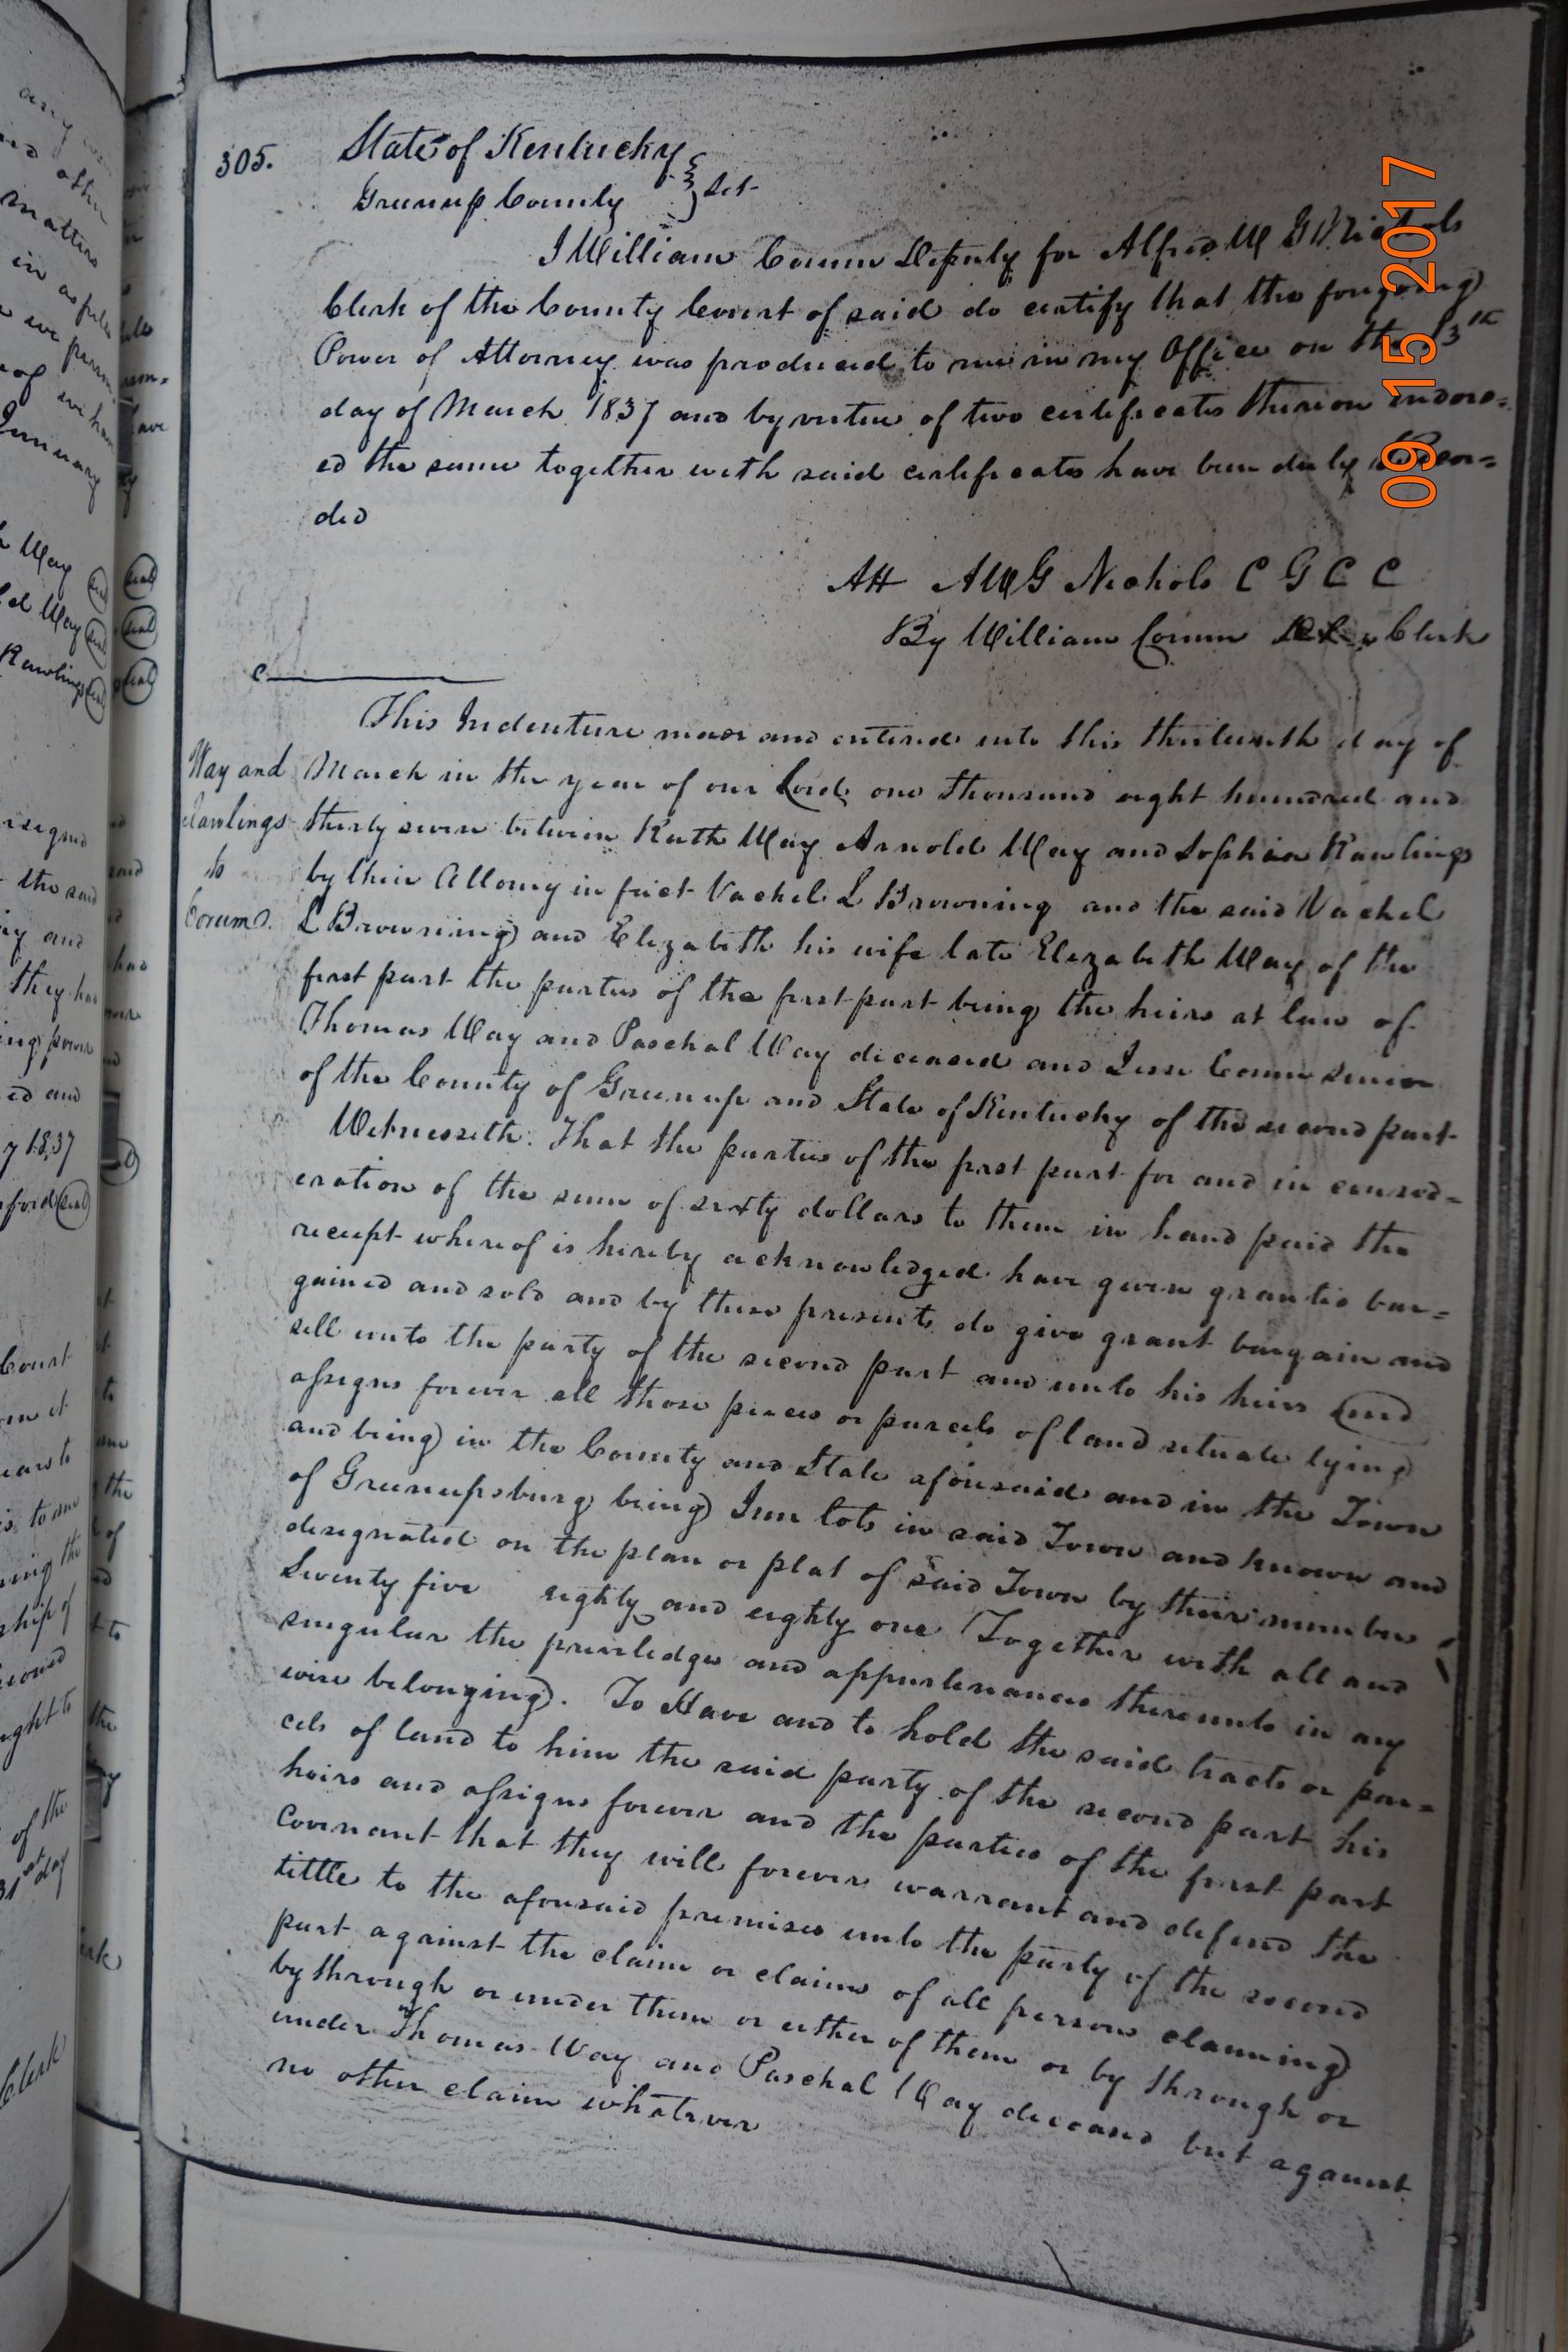 305.
State of Kentucky
Greenup County } Sct
I William Corum Deputy for Alfred W G Nichols
Clerk of the County Court of said do certify that the foregoing
Power of Attorney was produced to me in my Office on the 13th
day of March 1837 and by virtue of two certificates thereon endors=
ed the same together with said certificates have been duly Recor=
ded
Att AWG Nichols C G C C
By William Corum Clerk
This Indenture made and entered into this thirteenth day of
Way and
March in the year of our Lord one thousand eight hundred and
Rawlings
thirty seven between Ruth Way Arnold Way and Sophia Rawlings
to
by their Attorney in fact Vachel L Browning and the said Vachel
Corum D.
L Browning and Elizabeth his wife late Elizabeth Way of the
first part the parties of the first part being the heirs at law of
Thomas Way and Paschal Way deceased and Jesse Corum senior
of the County of Greenup and State of Kentucky of the second part
Witnesseth. That the parties of the first part for and in consid=
eration of the sum of sixty dollars to them in hand paid the
receipt whereof is hereby acknowledged have given granted bar=
gained and sold and by these presents do give grant bargain and
sell unto the party of the second part and unto his heirs and
assigns forever all those pieces or parcels of land situate lying
and being in the County and State aforesaid and in the Town
of Greenupsburg being Inn lots in said Town and known and
designated on the plan or plat of said Town by their numbers
Seventy five eighty and eighty one Together with all and
singular the priviledges and appurtenances thereunto in any
wise belonging. To Have and to hold the said tracts or par=
cels of land to him the said party of the second part his
heirs and assigns forever and the parties of the first part
Covenant that they will forever warrant and defend the
tittle to the aforesaid premises unto the party of the second
part against the claim or claims of all persons claiming
by through or under them or either of them or by through or
under Thomas Way and Paschal Way deceased but against
no other claim whatever
09 15 2017